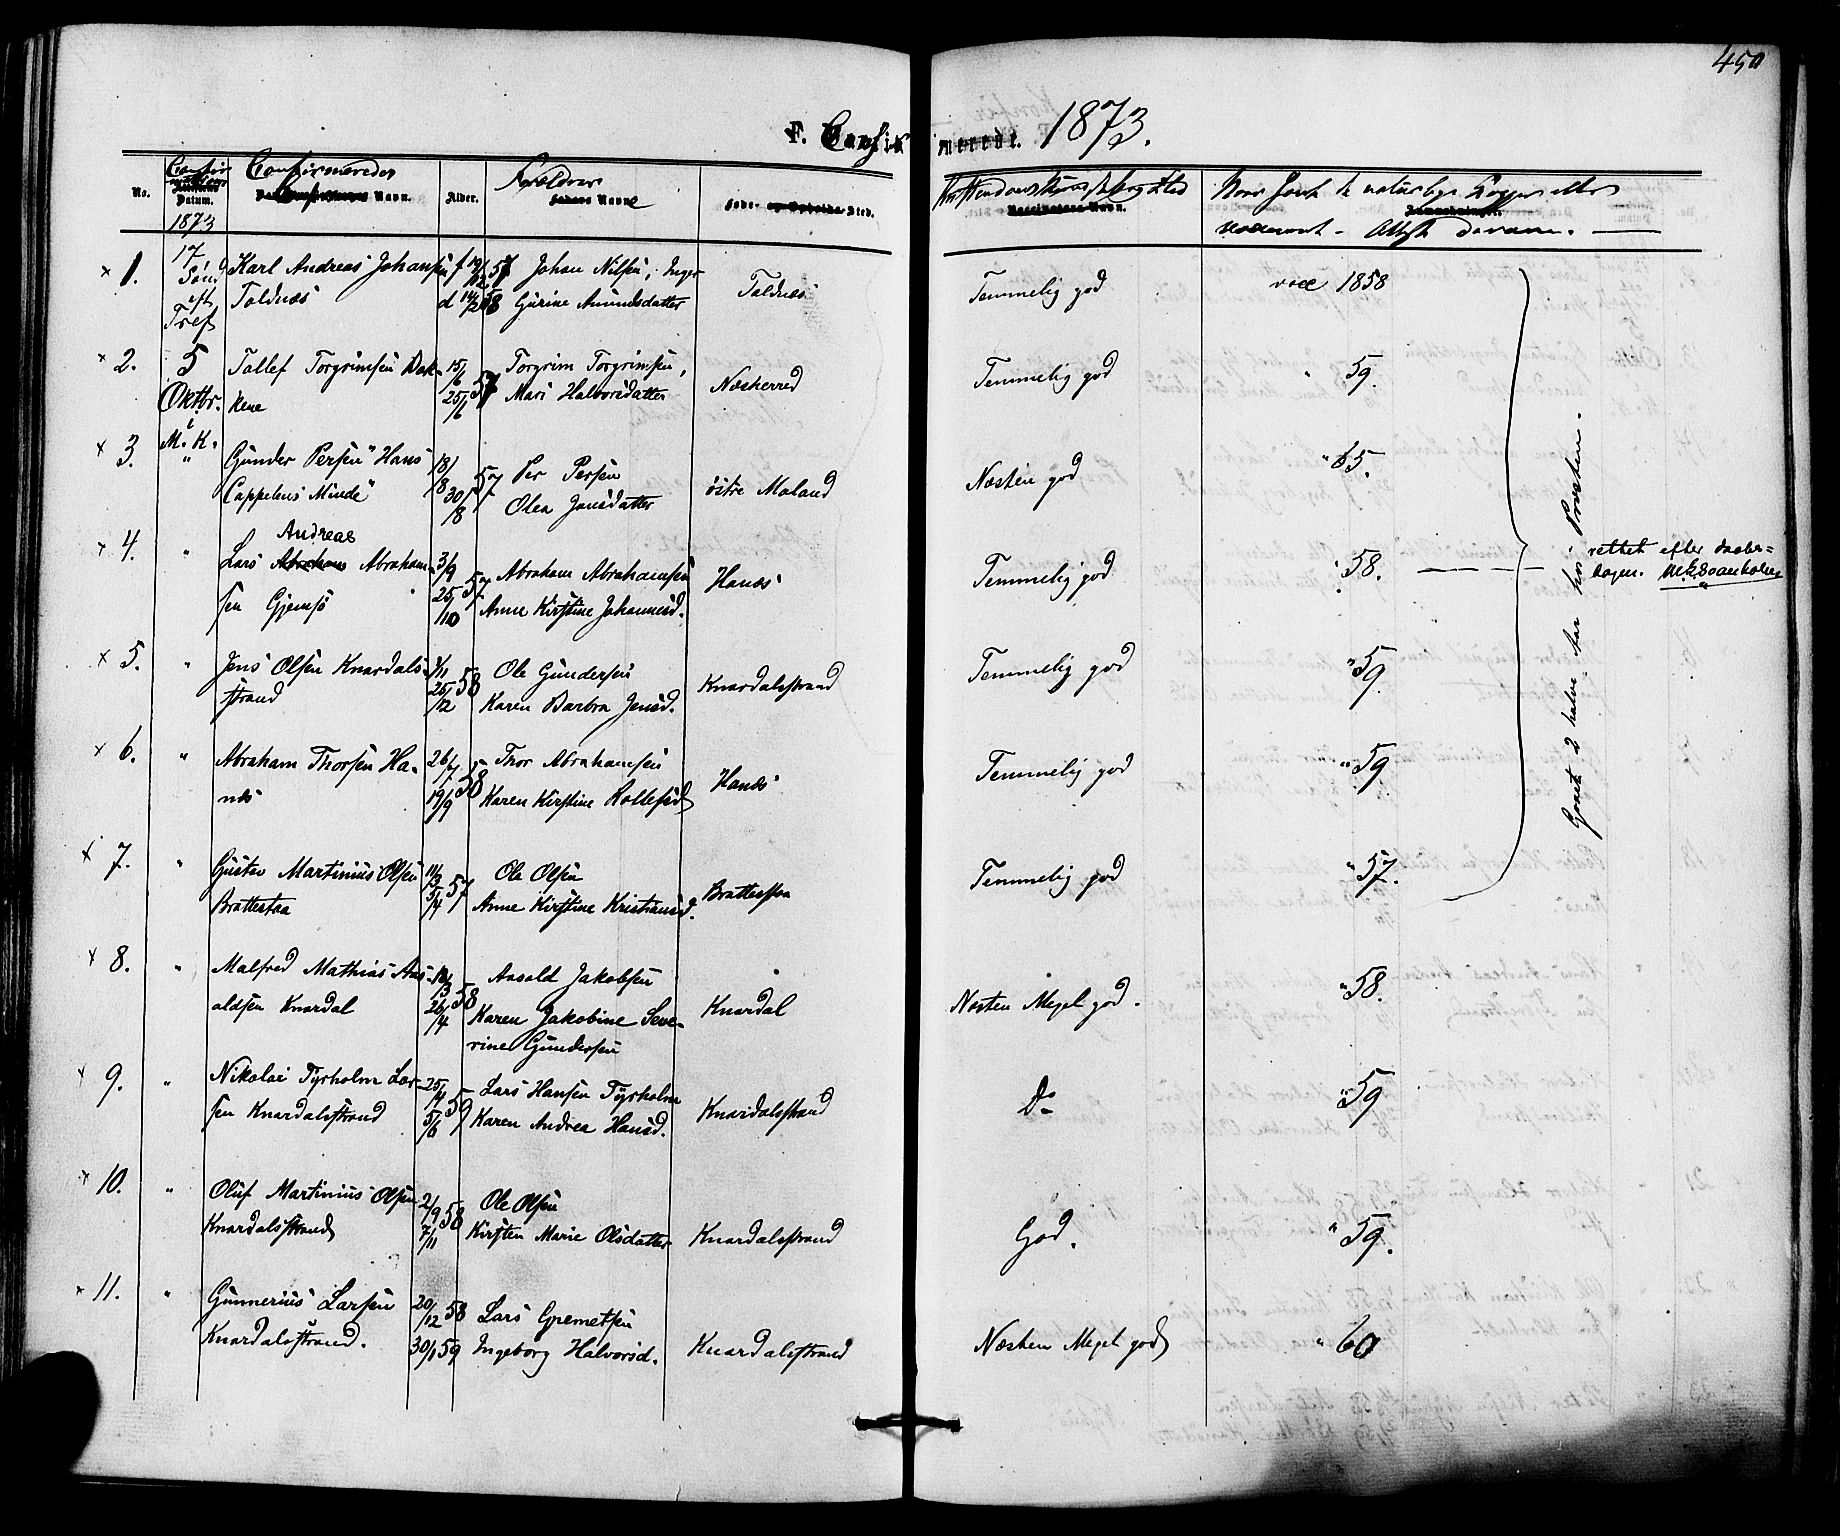 450
F. Confirmerede. 1873.
No.
Datum.
1873
Confirmeredes Navn.
Alder.
Forældres Navne
Føde- Sted.
× 1. 17 Karl Andreas Johansen f 19/12 57 Johan Nilsen, Inger Toldnæs Temmelig god vacc 1858
Sønd Toldnæs d 14/2 58 Gurine Amundsdatter
eft
Tref
× 2. 5 Tollef Torgrimsen Bak- 15/6 57 Torgrim Torgrimsen, Næsherred Temmelig god " 59.
Oktbr. kene 25/6 Mari Halvorsdatter
i
M. K.
× 3. " Gunder Persen "Hans 18/8 57 Per Persen østre Moland Næsten god " 65.
Cappelens Minde" 30/8 Olea Jensdatter
Andreas
× 4. " Lars Abraham Abraham- 3/9 57 Abraham Abrahamsen Hanæs Temmelig god " 58. rettet efter daaba=
sen Gjemsö 25/10 Anne Kirstine Johannesd. bogen.
× 5. " Jens Olsen Knardals- 3/11 Ole Gundersen Knardalsstrand Temmelig god " 59.
strand 25/12 58 Karen Barbra Jensd.
× 6. " Abraham Thorsen Ha- 26/7 58 Thor Abrahamsen Hanæs Temmelig god " 59.
næs 19/9 Karen Kirstine Rollefsd
× 7. " Gustav Martinius Olsen 11/3 57 Ole Olsen Brattestaa Temmelig god " 57.
Brattestaa 5/4 Anne Kirstine Kristiansd.
Gaaet 2 halve Aar hos Præsten.
× 8. " Malfred Mathias Aas- 18/3 58 Aasold Jakobsen Knardal Næsten Meget god. " 58.
oldsen Knardal 26/4 Karen Jakobine Seve-
rine Gundersen
× 9. " Nikolai Tyrholm Lar- 25/4 59 Lars Hansen Tyrholm Knardalsstrand Do " 59
sen Knardalsstrand 5/6 Karen Andrea Hansd.
× 10. " Oluf Martinius Olsen 2/9 58 Ole Olsen Knardalsstrand God. " 59.
Knardalsstrand 7/11 Kirsten Marie Olsdatter
× 11. " Gunnerius Larsen 20/12 58 Lars Gremetsen Knardalsstrand Næsten Meget god " 60
Knardalsstrand. 30/1 59 Ingeborg Halvorsd.